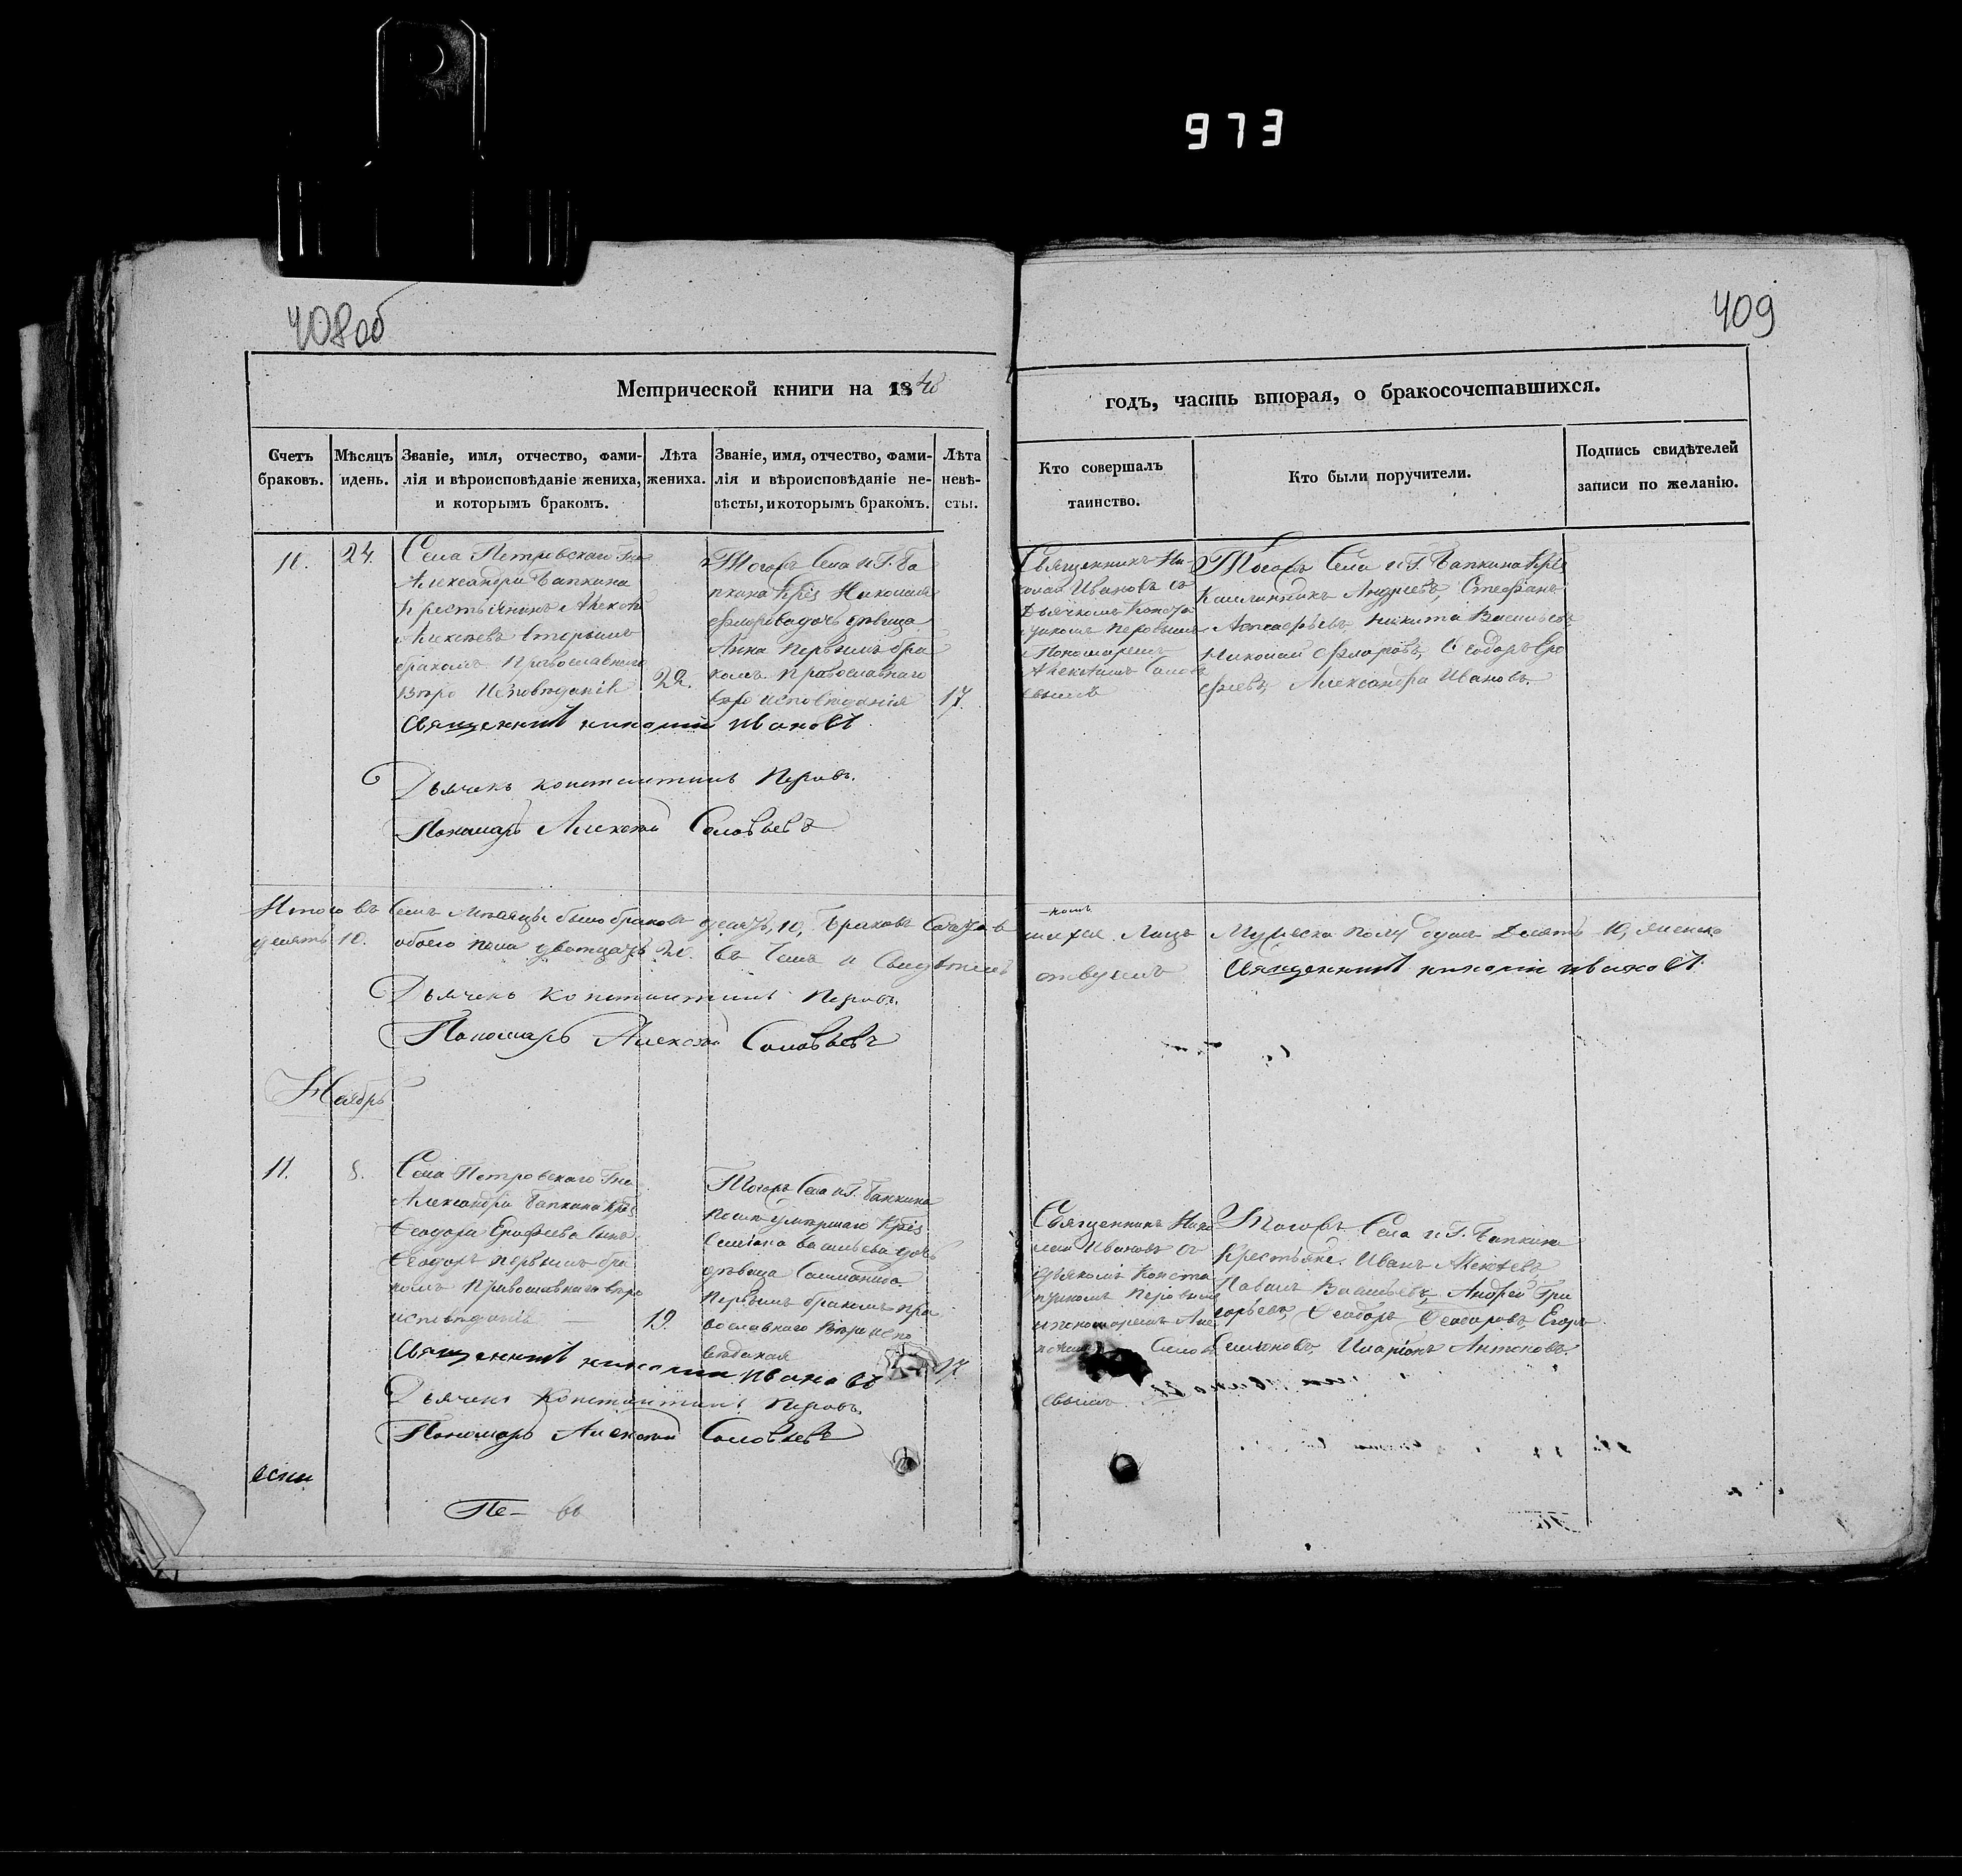 973
408об
409
Метрической книги на 1840
годъ, часть вторая, о бракосочетавшихся.
Счетъ браковъ.
Мѣсяцъ идень.
Званіе, имя, отчество, фами-
лія и вѣроисповѣданіе жениха,
и которымъ бракомъ.
Лѣта жениха.
Званіе, имя, отчество, фами-
лія и вѣроисповѣданіе не-
вѣсты, и которымъ бракомъ.
Лѣта невѣ-
сты.
Кто совершалъ
таинство.
Кто были поручители.
Подпись свидѣтелей
записи по желанію.
10.
24.
Села Петровскаго Гна
Александра Бапкина
Крестьянинъ Алексѣй
Алексѣевъ вторымъ
бракомъ Православнаго
вѣро Исповѣданія
22.
Тогожъ Села и Г. Ба
пкина Крес Николая
Флорова дочь дѣвица
Анна первымъ бра
комъ Православнаго
вѣро исповѣданія
17.
Священникъ Ни
колай Ивановъ съ
Дьячкомъ Конста
нтиномъ Перовымъ
и Пономаремъ
Алексѣемъ Соловь
евымъ
Тогожъ Села и Г. Бапкина Крес
Андреевъ, Стефанъ
Никита Васильевъ
Николай Флоровъ, Ѳеодоръ Еро
фѣевъ, Александра Ивановъ.
Священникъ николай ивановъ
Дьячекъ константинъ Перовъ.
Пономарь Алексѣй Соловьевъ
Итого въ Семъ Мѣсяцѣ было браковъ десять, 10, Браковъ Сочетав
шихся Лицъ Мужеска полу десять 10, женско
десять 10. обоего пола двотцать 20. въ Чемъ и Свидѣтель
ствуемъ Священникъ николай ивановъ.
Дьячекъ Константинъ Перовъ.
Пономарь Алексѣй Соловьевъ
Ноябрь
11.
8.
Села Петровскаго Гна
Александра Бапкина Крес
Ѳеодора Ерофѣева Сынъ
Ѳеодоръ первымъ бра
комъ Православнаго вѣро
исповѣданія —
19.
Тогожъ Села и Г. Бапкина
После Умершаго Крес
Семіона Васильева дочь
дѣвица Соломанида
Первымъ бракомъ пра
вославнаго вѣро испо
вѣданія
17
Священникъ Нико
лай Ивановъ съ
дьякомъ Конста
нтиномъ Перовымъ
и пономаремъ Але
Солов
евымъ
Тогожъ Села и Г. Бапкина
Крестьяне. Иванъ Алексѣевъ,
Павелъ Васильевъ, Андрей Гри
горьевъ, Ѳеодоръ Ѳеодоровъ, Егоръ
Семеновъ, Иларіонъ Антоновъ.
Священникъ николай ивановъ
Дьячекъ Константинъ Перовъ.
Пономарь Алексѣй Соловьевъ
Пе-